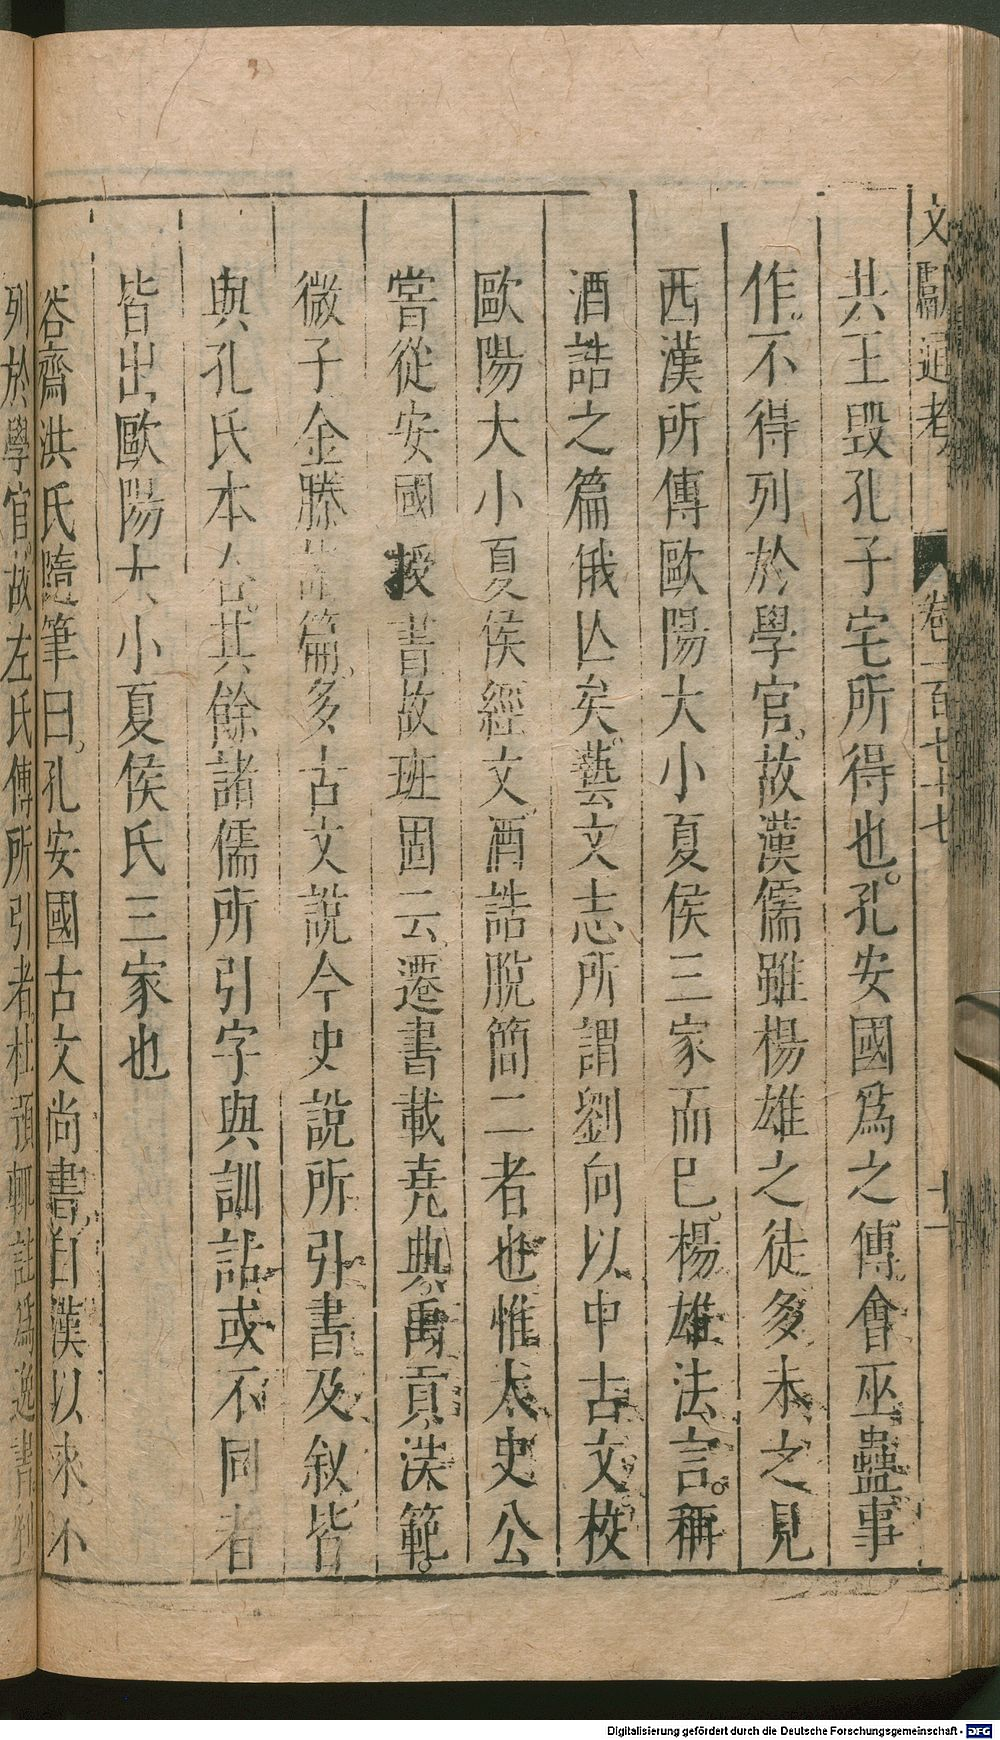 文獻通考 卷一百七十七 十一
共王毀孔子宅所得也孔安國爲之傳會巫蠱事
作不得列於學官故漢儒雖楊雄之徒多未之見
西漢所傳歐陽大小夏侯三家而已楊雄法言稱
酒誥之篇俄亾矣藝文志所謂劉向以中古文校
歐陽大小夏侯經文酒誥脫簡二者也惟太史公
嘗從安國授書故班固云遷書載堯典禹貢洪範
微子金縢諸篇多古文說今史說所引書及叙皆
與孔氏本合其餘諸儒所引字與訓詁或不同者
皆出歐陽大小夏侯氏三家也
容齋洪氏隨筆曰孔安國古文尚書自漢以來不
列於學官故左氏傳所引者杜預輒註爲逸書
Digitalisierung gefördert durch die Deutsche Forschungsgemeinschaft - DFG